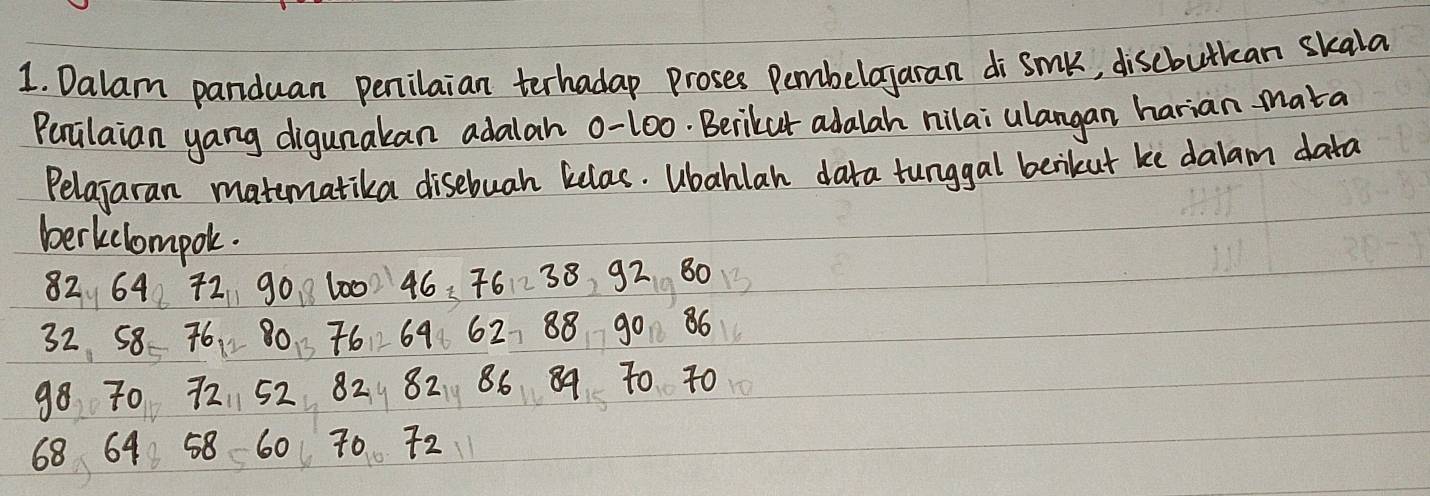 1. Dalam panduan penilaian terhadap proses Pembelajaran di SMK, disebutkan skala
Penilaian yang digunakan adalah 0-100. Berikut adalah nilai ulangan harian mata
Pelajaran matematika disebuah kelas. Ubahlah data tunggal berikut ke dalam data
berkelompok.
82 64 72 90 100 46 76 38 92 80
32 58 76 80 76 64 62 88 90 86
98 70 72 52 82 82 86 84 70 70
68 64 58 60 70 72